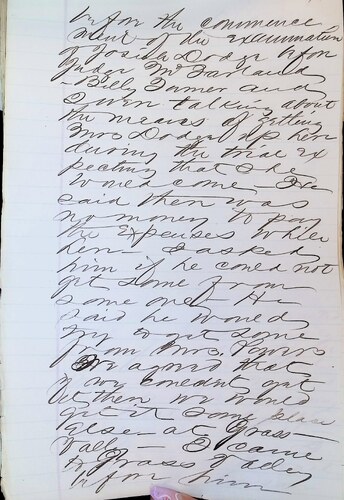 before the commence
ment of the examination
of Josiah Dodge before
Judge McFarland
Billy Turner and
I were talking about
the means of getting
Mrs Dodge up here
during the trial ex
pecting that she
would come He
said there was
no money to pay
the expenses while
here I asked
him if he could not
get some from
some one He
said he would
try to get some
from Mrs.
We agreed that
if we couldnt get
it there we would
get it some place
else at Grass
Valley I came
to Grass Valley
before him